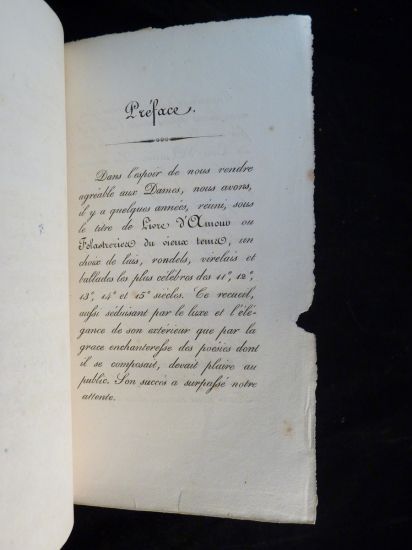 Préface.
Dans l'espoir de nous rendre
agréable aux Dames, nous avons,
il y a quelques années, réuni, sous
le titre de Livre d'Amour ou
Folastreries du vieux tems, un
choix de lais, rondels, virelais et
ballades les plus célèbres des 11e, 12e,
13e, 14e et 15e siècles. Ce recueil,
aussi séduisant par le luxe et l'élé-
gance de son extérieur que par la
grace enchanteresse des poésies dont
il se composait, devait plaire au
public. Son succès a surpassé notre
attente.